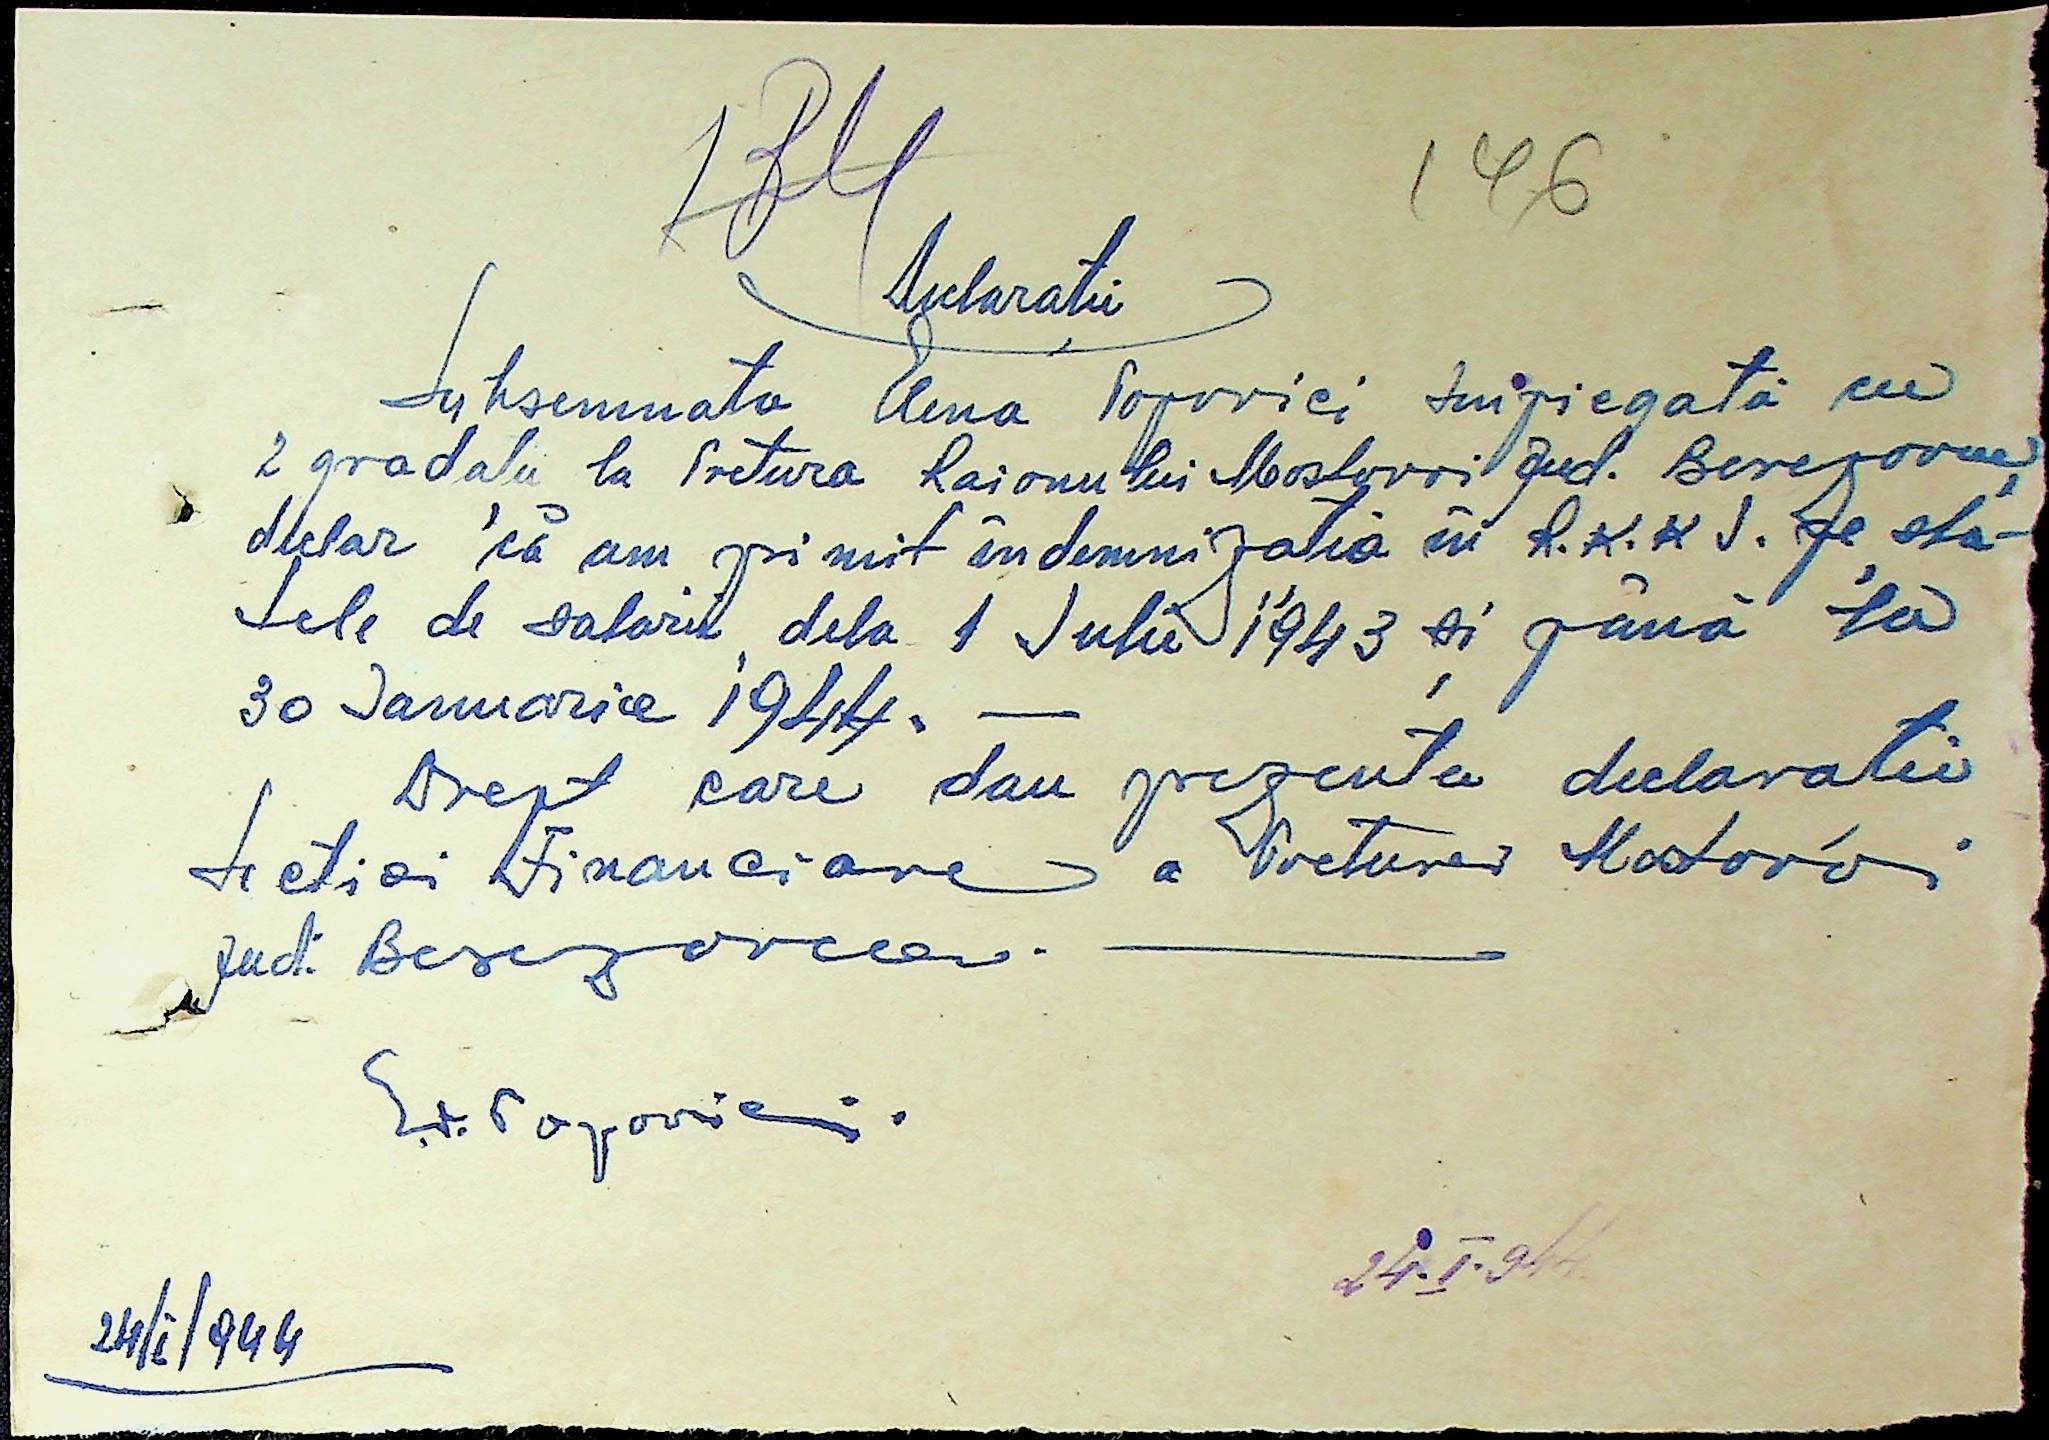 134
146
Declarație
Subsemnata Elena Popovici Impiegată cu
2 gradatii la Pretura Raionului Mostovoi Jud. Berezovca
declar că am primit îndemnizatia în R.K.K.S. pe sta-
tele de salarii, dela 1 Iulie 1943 și până la
30 Ianuarie 1944. —
Drept care dau prezenta declaratie
Sectiei Financiare a Preturei Mostovoi
Jud. Berezovca. —
E. Popovici.
24.I.944.
24/I/944